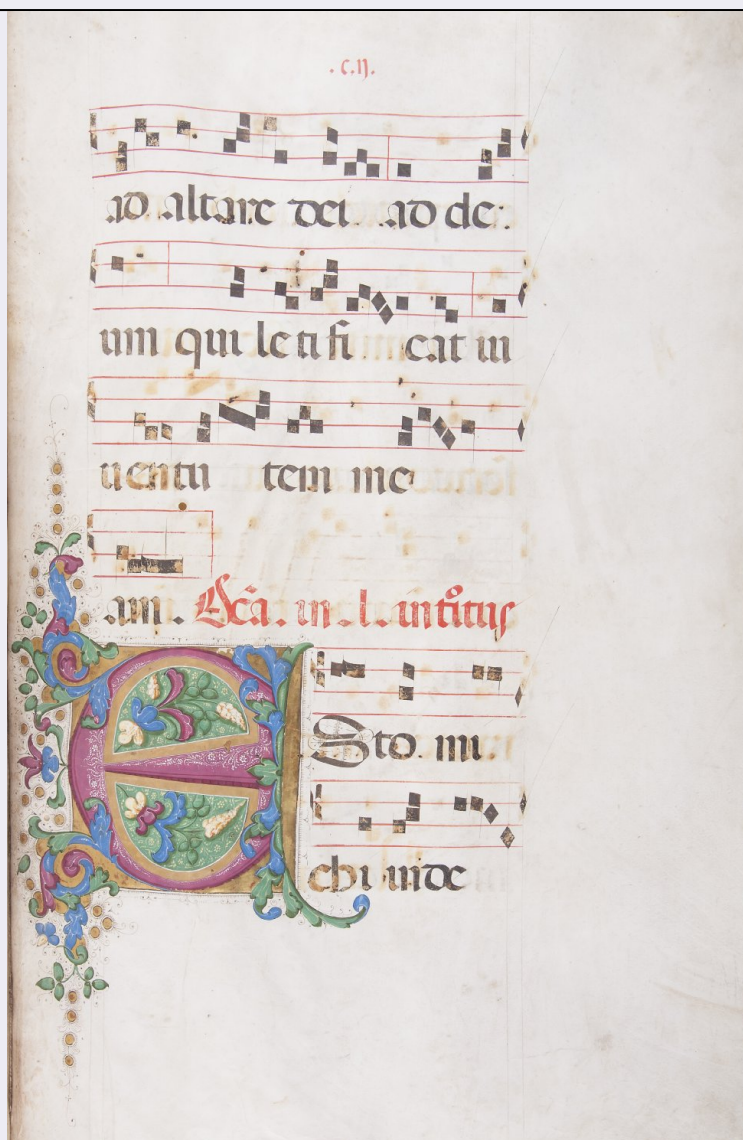 .c.ij.
ad altare dei. ad de:
um qui leti fi cat iu
uentu tem me
am. Dc̄a. in .l. intͦitus
ESto. mi
chi in de